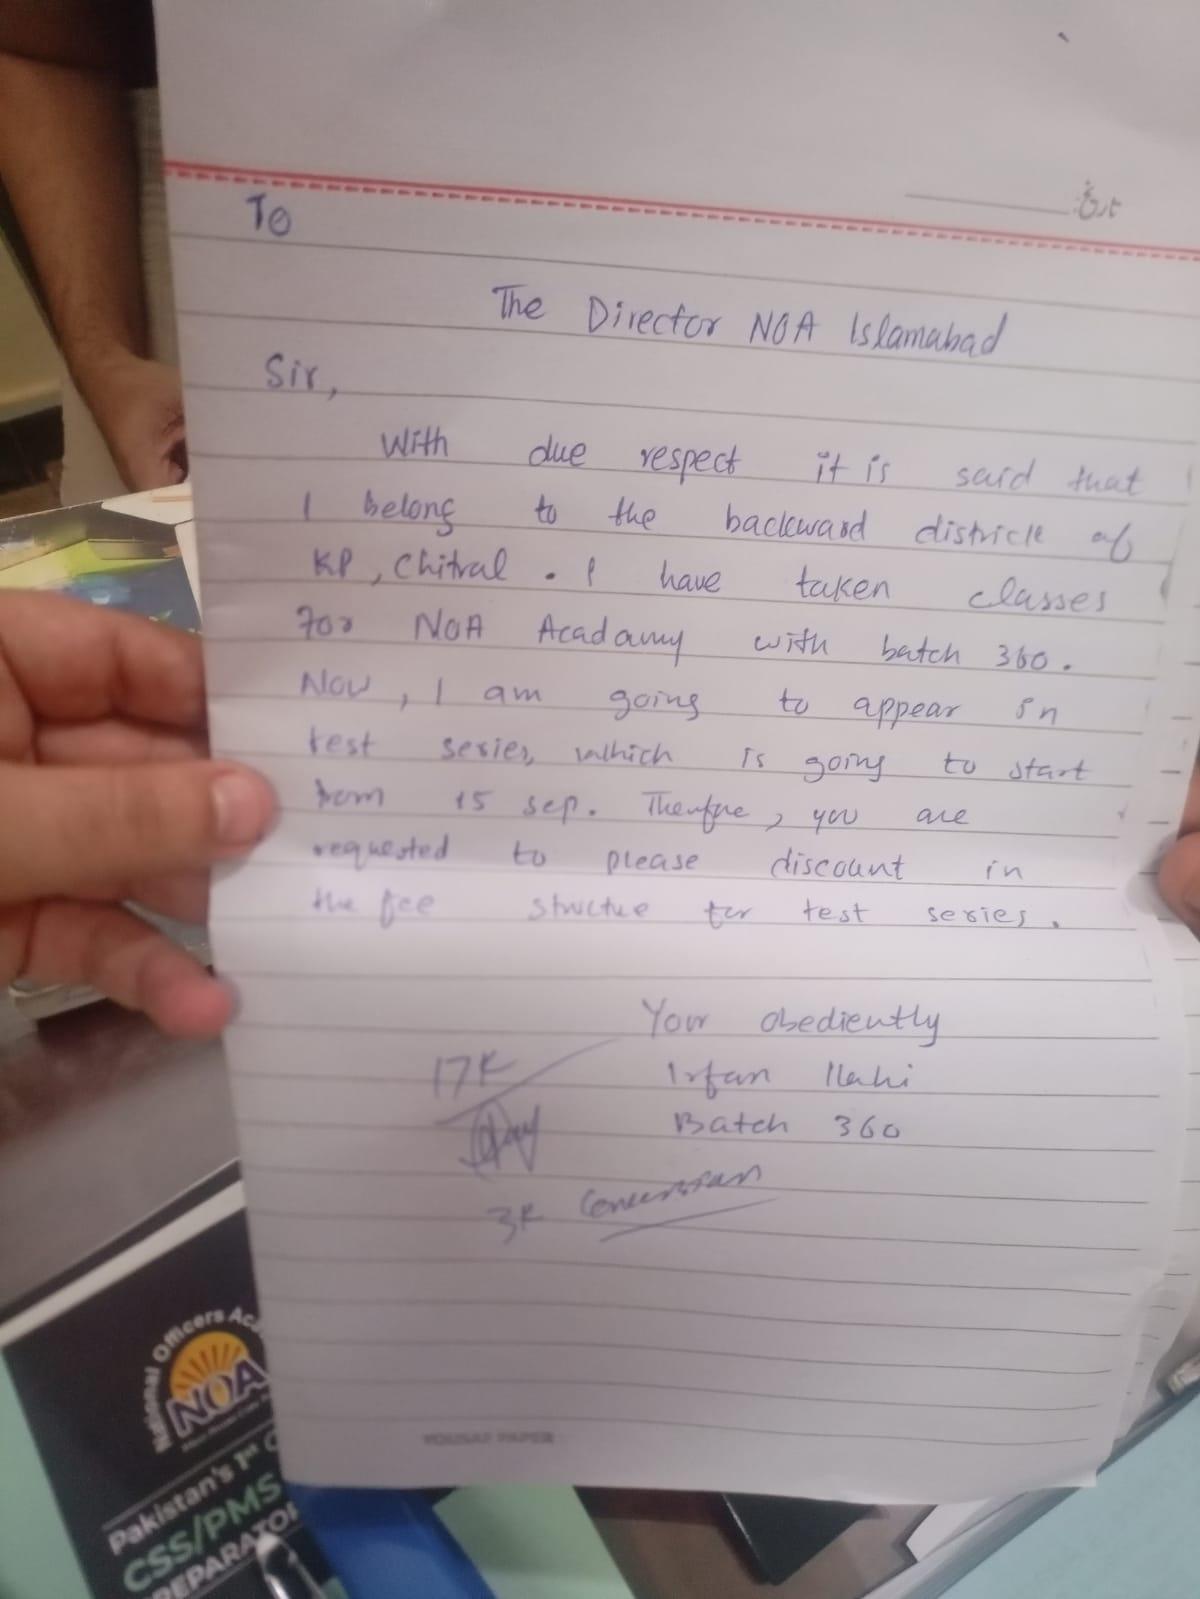 تاریخ:
To
The Director NOA Islamabad
Sir,
With due respect it is said that
I belong to the backward districk of
KP, Chitral. I have taken classes
for NOA Acadamy with batch 360.
Now, I am going to appear in
test series, which is going to start
from 15 sep. Therefore, you are
requested to please discount in
the fee structue for test series.
Your obediently
Irfan Ilahi
Batch 360
17K
3K Concession
YOUSAF PAPER
National Officers Aca
NOA
Pakistan's 1st
CSS/PMS
REPARATO